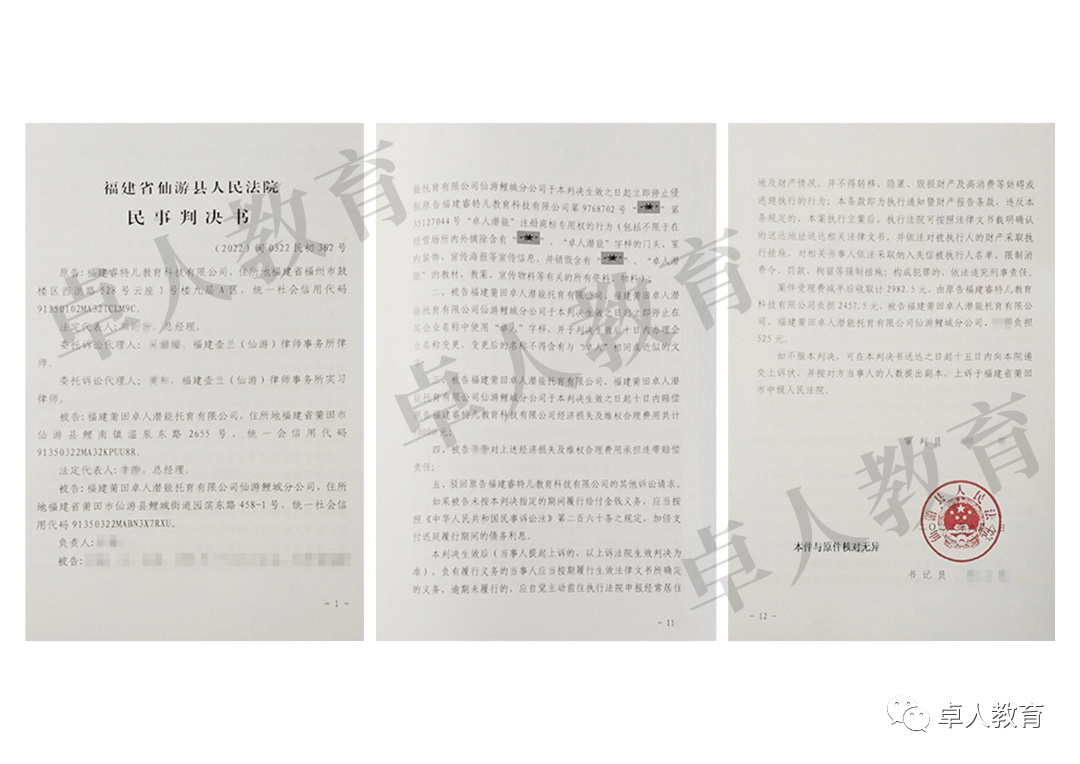 福建省仙游县人民法院
民事判决书
（2022）闽0322民初362号
原告：福建睿特儿教育科技有限公司，住所地福建省福州市鼓
楼区西洪路528号云座1号楼九层A区，统一社会信用代码
91350102MA327CLM9C。
法定代表人：，总经理。
委托诉讼代理人：，福建壶兰（仙游）律师事务所律
师。
委托诉讼代理人：，福建壶兰（仙游）律师事务所实习
律师。
被告：福建莆田卓人潜能托育有限公司，住所地福建省莆田市
仙游县鲤南镇温泉东路2655号，统一社会信用代码
91350322MA32KPUU8R。
法定代表人：，总经理。
被告：福建莆田卓人潜能托育有限公司仙游鲤城分公司，住所
地福建省莆田市仙游县鲤城街道园滨东路458-1号，统一社会信
用代码91350322MABN3X7RXU。
负责人：
被告：
- 1 -
能托育有限公司仙游鲤城分公司于本判决生效之日起立即停止侵
犯原告福建睿特儿教育科技有限公司第9768702号 第
35127044号“卓人潜能”注册商标专用权的行为（包括不限于在
经营场所内外摘除含有“ ”、“卓人潜能”字样的门头、室
内装饰、宣传海报等宣传信息，并销毁含有“ ”、“卓人潜
能”的教材、教案、宣传物料等有关的所有资料、物料）；
二、被告福建莆田卓人潜能托育有限公司、福建莆田卓人潜
能托育有限公司仙游鲤城分公司于本判决生效之日起立即停止在
其企业名称中使用“卓人”字样，并于判决生效之日十日内办理企
业名称变更，变更后的名称不得含有与“卓人”相同或近似的文
字；
三、被告福建莆田卓人潜能托育有限公司、福建莆田卓人潜
能托育有限公司仙游鲤城分公司于本判决生效之日起十日内赔偿
原告福建睿特儿教育科技有限公司经济损失及维权合理费用共计
元；
四、被告对上述经济损失及维权合理费用承担连带赔偿
责任；
五、驳回原告福建睿特儿教育科技有限公司的其他诉讼请求。
如果被告未按本判决指定的期间履行给付金钱义务，应当按
照《中华人民共和国民事诉讼法》第二百六十条之规定，加倍支
付迟延履行期间的债务利息。
本判决生效后（当事人提起上诉的，以上诉法院生效判决为
准），负有履行义务的当事人应当按期履行生效法律文书所确定
的义务。逾期未履行的，应自觉主动前往执行法院申报经常居住
- 11
地及财产情况，并不得转移、隐匿、毁损财产及高消费等妨碍或
逃避执行的行为；本条款即为执行通知暨财产报告条款，违反本
条规定的，本案执行立案后，执行法院可按照法律文书载明确认
的送达地址送达相关法律文书，并依法对被执行人的财产采取执
行措施，对相关当事人依法采取纳入失信被执行人名单、限制消
费令、罚款、拘留等强制措施；构成犯罪的，依法追究刑事责任。
案件受理费减半后收取计2982.5元，由原告福建睿特儿教育
科技有限公司负担2457.5元，被告福建莆田卓人潜能托育有限公
司、福建莆田卓人潜能托育有限公司仙游鲤城分公司、负担
525元。
如不服本判决，可在本判决书送达之日起十五日内向本院递
交上诉状，并按对方当事人的人数提出副本，上诉于福建省莆田
市中级人民法院。
审判员
仙游县人民法院
本件与原件核对无异
书记员
- 12 -
卓人教育
卓人教育
卓人教育
卓人教育